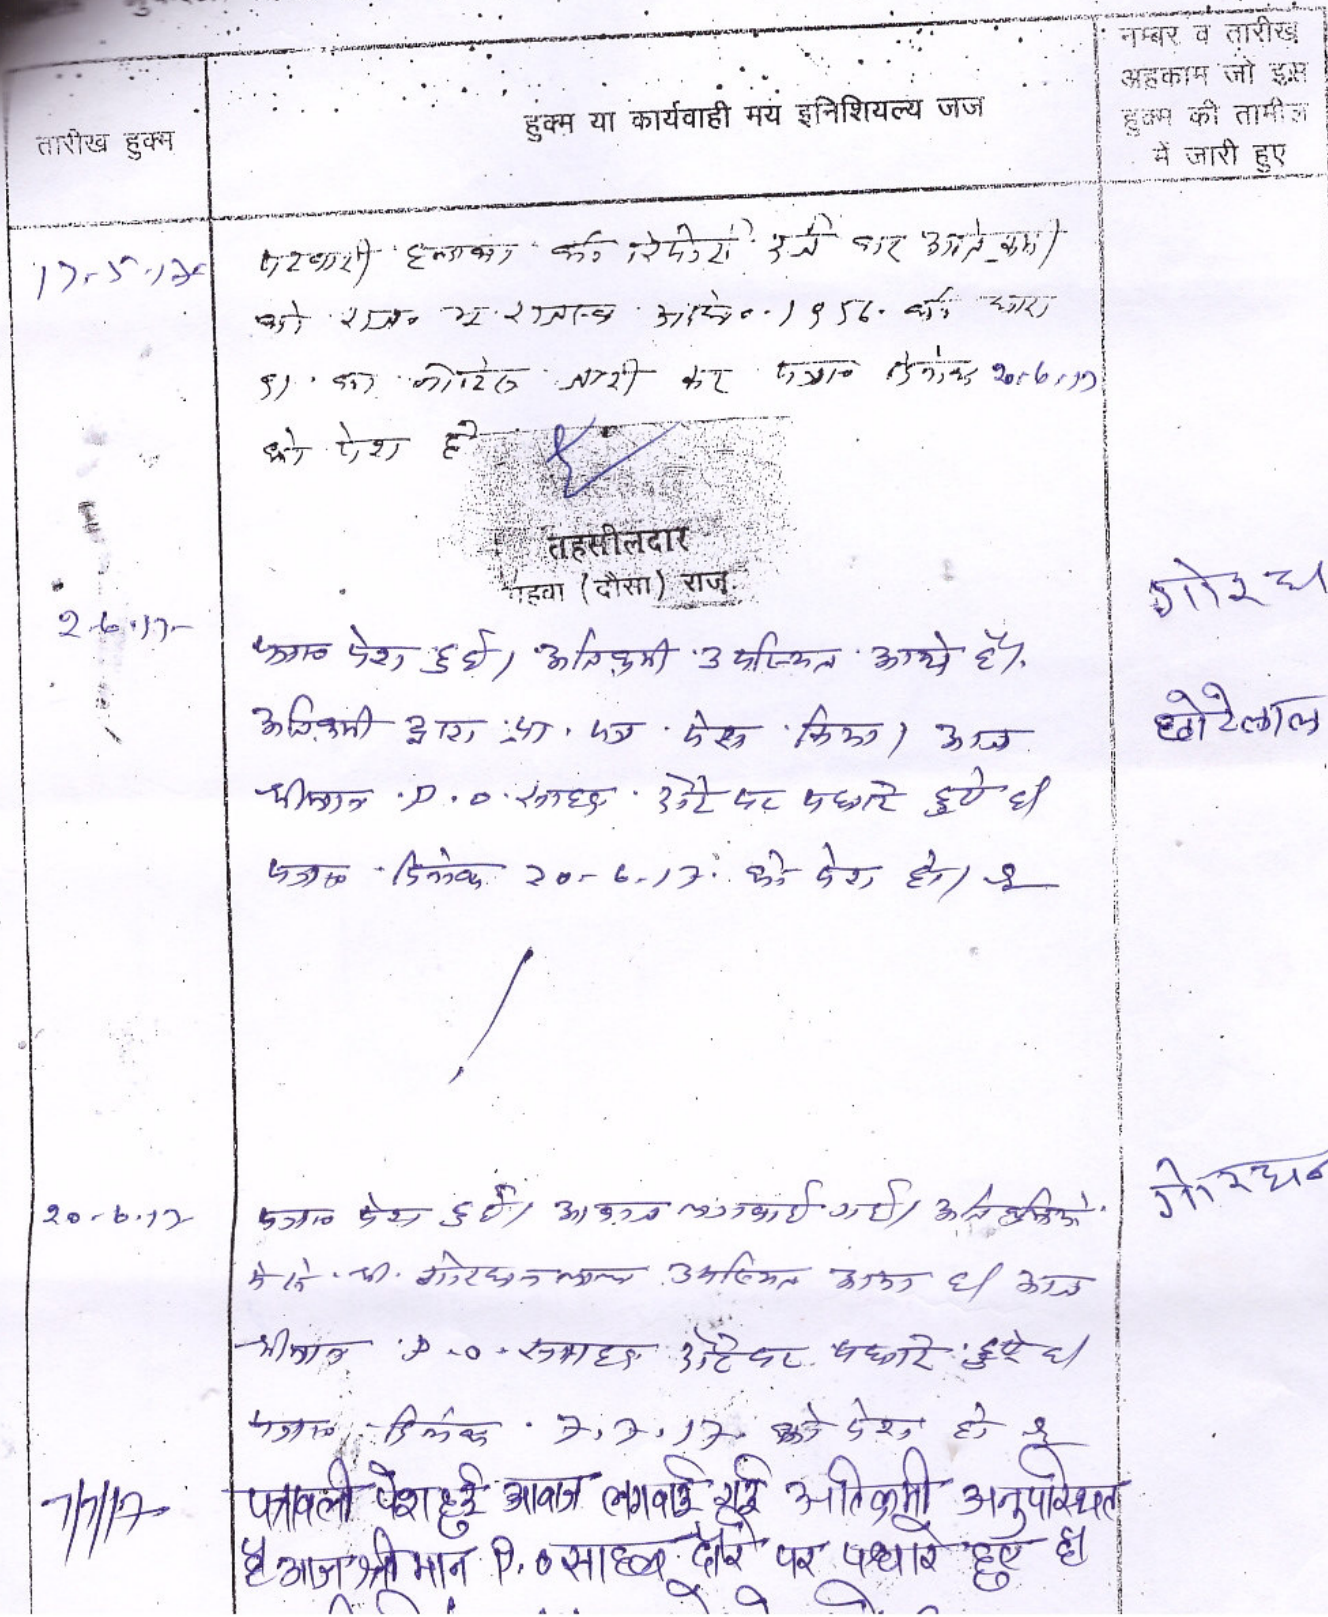 तारीख हुक्म
हुक्म या कार्यवाही मय इनिशियल्य जज
नम्बर व तारीख
अहकाम जो इस
हुक्म की तामील
में जारी हुए
17-5-17
पटवारी हल्का की रिपोर्ट दर्ज कर अतिक्रमी
को राज० भू राजस्व अधि०. 1956. की धारा
91 का नोटिस जारी कर पत्रा० दिनांक 20-6-17
को पेश हो
तहसीलदार
(दौसा) राज.
2-6-17-
पत्रा० पेश हुई। अतिक्रमी उपस्थित आये है।
अतिक्रमी द्वारा प्रा. पत्र पेश किया। आज
श्रीमान P.O. साहब दौरे पर पधारे हुये है।
पत्रा० दिनांक 20-6-17. को पेश हो।
गोरध
छोटेलाल
20-6-17
पत्रा० पेश हुई। आवाज लगवाई गई। अतिक्रमियो
मे से श्री गोरधनलाल उपस्थित आया है। आज
श्रीमान P.O. साहब दौरे पर पधारे हुए है।
पत्रा० दिनांक 7.7.17. को पेश हो
गोरधन
7/7/17
पत्रावली पेश हुई आवाज लगवाई गई अतिक्रमी अनुपस्थित
है आज श्रीमान P.O साहब दौरे पर पधारे हुए है।